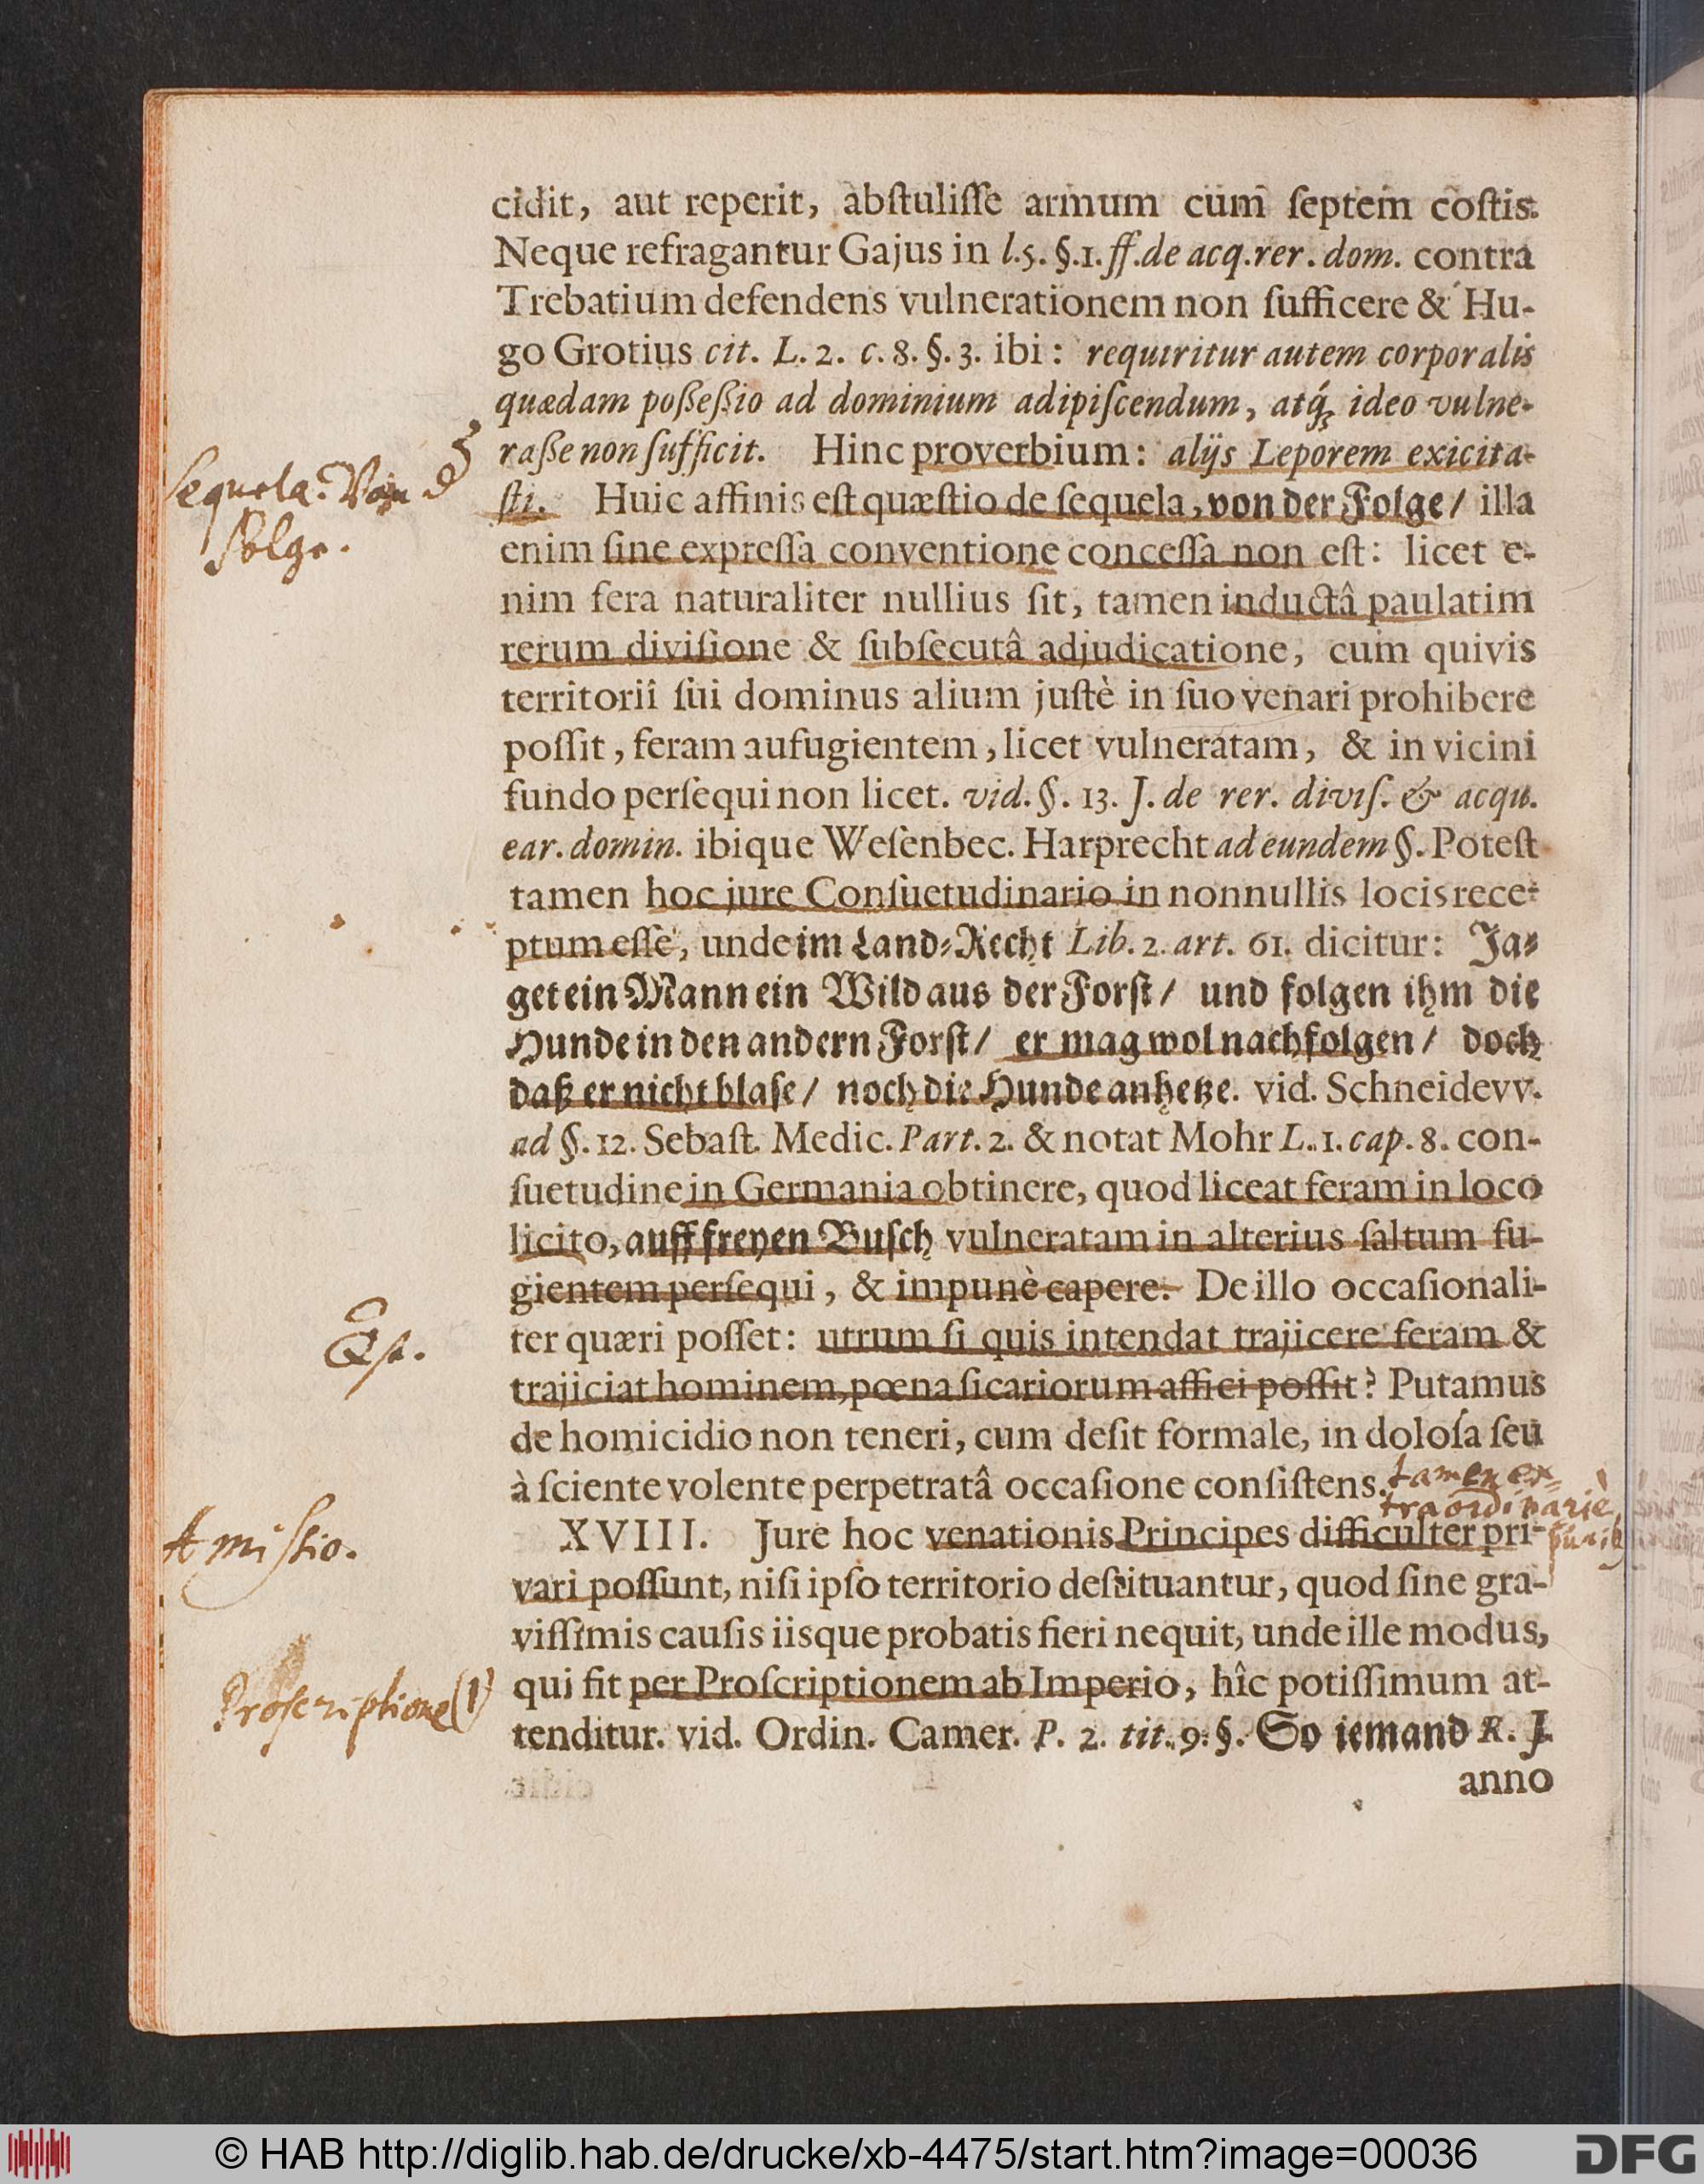 cidit, aut reperit, abſtuliſſe armum cum ſeptem coſtis.
Neque refragantur Gajus in l.5. §.1. ff. de acq. rer. dom. contra
Trebatium defendens vulnerationem non ſufficere & Hu-
go Grotius cit. L. 2. c. 8. §. 3. ibi: requiritur autem corporalis
quædam poßeßio ad dominium adipiſcendum, atq́; ideo vulne-
raße non ſufficit. Hinc proverbium: alijs Leporem exicita-
Sequela. Von d
ſti. Huic affinis eſt quæſtio de ſequela, von der Folge/ illa
Folge.
enim ſine expreſſa conventione conceſſa non eſt: licet e-
nim fera naturaliter nullius ſit, tamen inductâ paulatim
rerum diviſione & ſubſecutâ adjudicatione, cum quivis
territorii ſui dominus alium juſtè in ſuo venari prohibere
poſſit, feram aufugientem, licet vulneratam, & in vicini
fundo perſequi non licet. vid. §. 13. J. de rer. diviſ. & acqu.
ear. domin. ibique Weſenbec. Harprecht ad eundem §. Poteſt
tamen hoc jure Conſuetudinario in nonnullis locis rece-
ptum eſſe, unde im Land-Recht Lib. 2. art. 61. dicitur: Ja-
get ein Mann ein Wild aus der Forſt/ und folgen ihm die
Hunde in den andern Forſt/ er mag wol nachfolgen/ doch
daß er nicht blaſe/ noch die Hunde anhetze. vid. Schneidevv.
ad §. 12. Sebaſt. Medic. Part. 2. & notat Mohr L. 1. cap. 8. con-
ſuetudine in Germania obtinere, quod liceat feram in loco
licito, auff freyen Buſch vulneratam in alterius ſaltum fu-
gientem perſequi, & impunè capere. De illo occaſionali-
Qſt.
ter quæri poſſet: utrum ſi quis intendat trajicere feram &
trajiciat hominem, pœna ſicariorum affici poſſit? Putamus
de homicidio non teneri, cum deſit formale, in doloſa ſeu
à ſciente volente perpetratâ occaſione conſiſtens. tamen ex-
traordinariè
Amiſſio.
XVIII. Jure hoc venationis Principes difficulter pri-
vari poſſunt, niſi ipſo territorio deſtituantur, quod ſine gra-
viſſimis cauſis iisque probatis fieri nequit, unde ille modus,
Proſcriptione (1)
qui fit per Proſcriptionem ab Imperio, hîc potiſſimum at-
tenditur. vid. Ordin. Camer. P. 2. tit. 9. §. So iemand R. J.
anno
© HAB http://diglib.hab.de/drucke/xb-4475/start.htm?image=00036
DFG